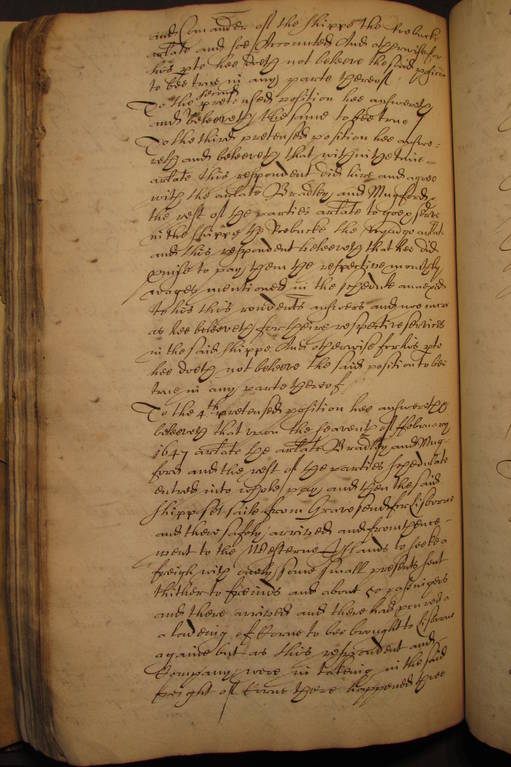 and Comander of the shippe the Roebuck
arlate and soe accounted And otherwise for
his pte hee doeth not beleeve the said position
to bee true in any parte thereof
To the second pretensed position hee answereth
and beleeveth the same to bee true
To the third pretensed position hee answe-
reth and beleeveth that within the time
arlate this respondent did hire and agree
with the arlate Bradley and Mugford,
the rest of the parties arlate to goe serve
in the shippe the Roebucke the voyage arlate
and this respondent beleeveth that hee did
pmise to pay them the respective monthly
wages mentioned in the schedule annexed
to his this rondents answers and noe more
as hee beleeveth for theire respective services
in the said shippe And otherwise for his pte
hee doeth not beleeve the said position to bee
true in any parte thereof
To the 4th pretensed position hee answereth
beleeveth that upon the seaventh of ffebruary
1647 arlate the arlate Bradley and Mug-
ford and the rest of the parties schedulate
entred into whole pay, and then the said
shipp set saile from Gravesend for Lisborne
and there safely arrived and from thence
went to the Westerne Islands to seeke a
freight with only some small presents sent
thither to freinds and about passingers
and there arrived and there had pmised a
a loading of Corne to bee brought to Lisborne
againe but as this respondent and
Company were in takeing in the said
freight of Corne there happened three